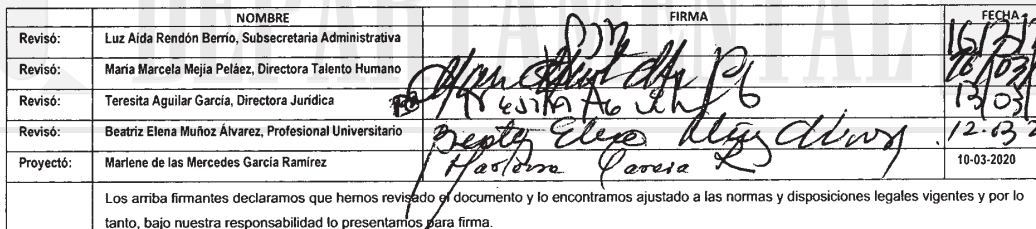 DEPARTAMENTAL
NOMBRE FIRMA FECHA
Revisó: Luz Aida Rendón Berrío, Subsecretaria Administrativa
Revisó: María Marcela Mejía Peláez, Directora Talento Humano
Revisó: Teresita Aguilar García, Directora Jurídica Teresita
Revisó: Beatriz Elena Muñoz Álvarez, Profesional Universitario Elena 12-03
Proyectó: Marlene de las Mercedes García Ramírez García R 10-03-2020
Los arriba firmantes declaramos que hemos revisado el documento y lo encontramos ajustado a las normas y disposiciones legales vigentes y por lo
tanto, bajo nuestra responsabilidad lo presentamos para firma.